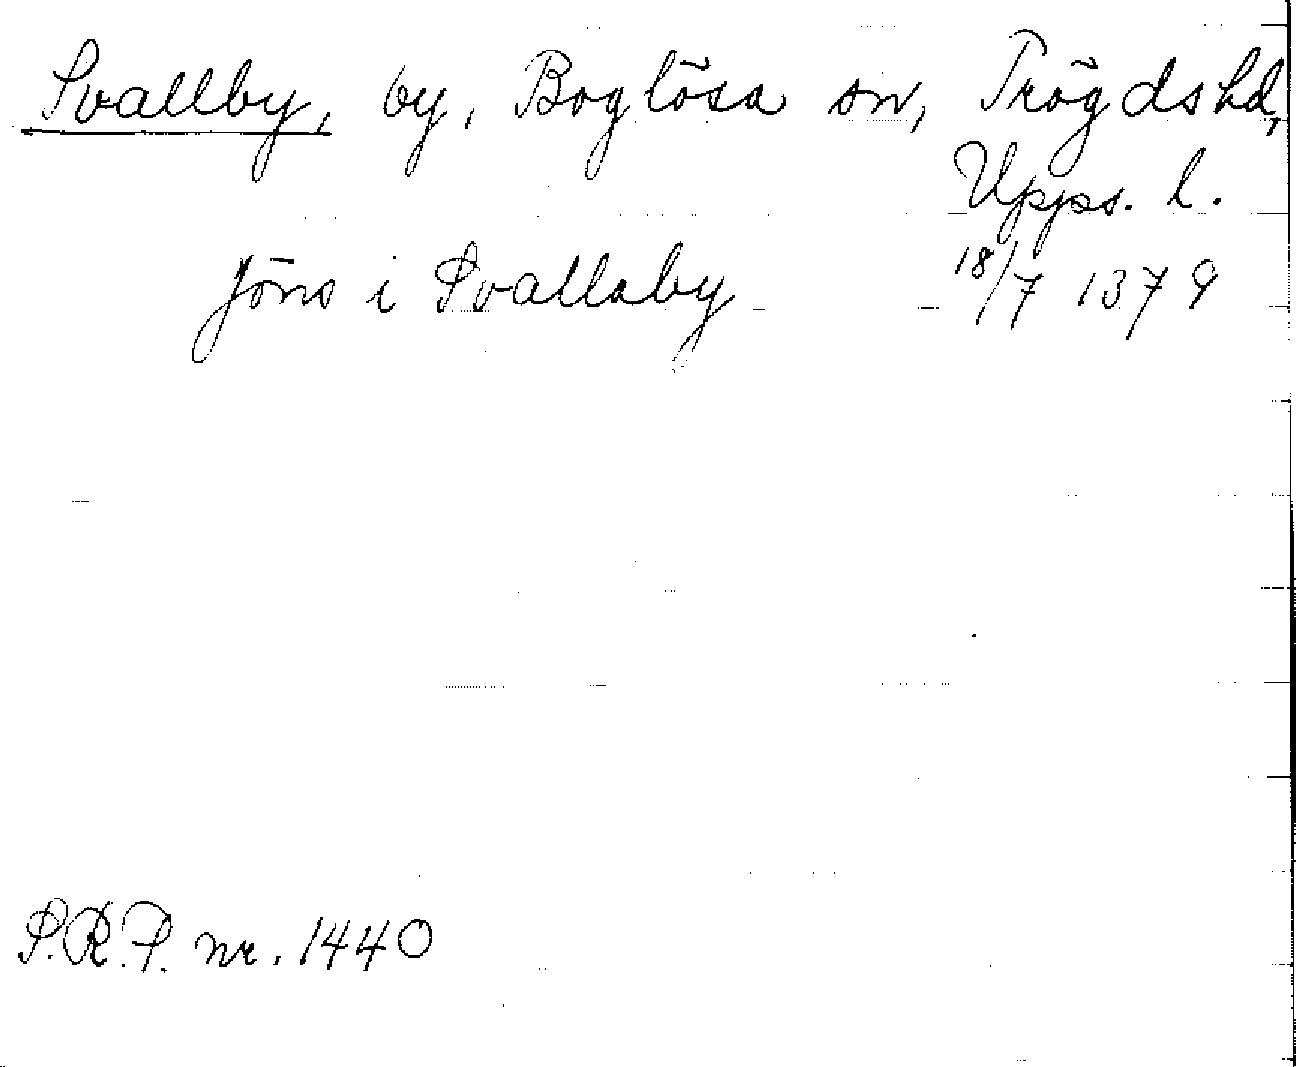 Svallby, by, Boglösa sn, Trögds hd,
Upps. l.
Jöns i Svallaby 18/7 1379
S.R.P. nr. 1440